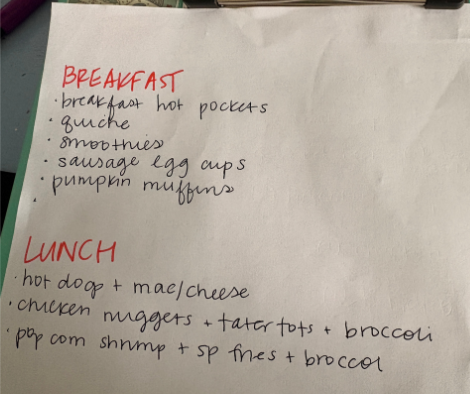 BREAKFAST
· breakfast hot pockets
· quiche
· smoothies
· sausage egg cups
· pumpkin muffins
·
LUNCH
· hot dogs + mac/cheese
· chicken nuggets + tater tots + broccoli
· pop corn shrimp + sp fries + broccoli